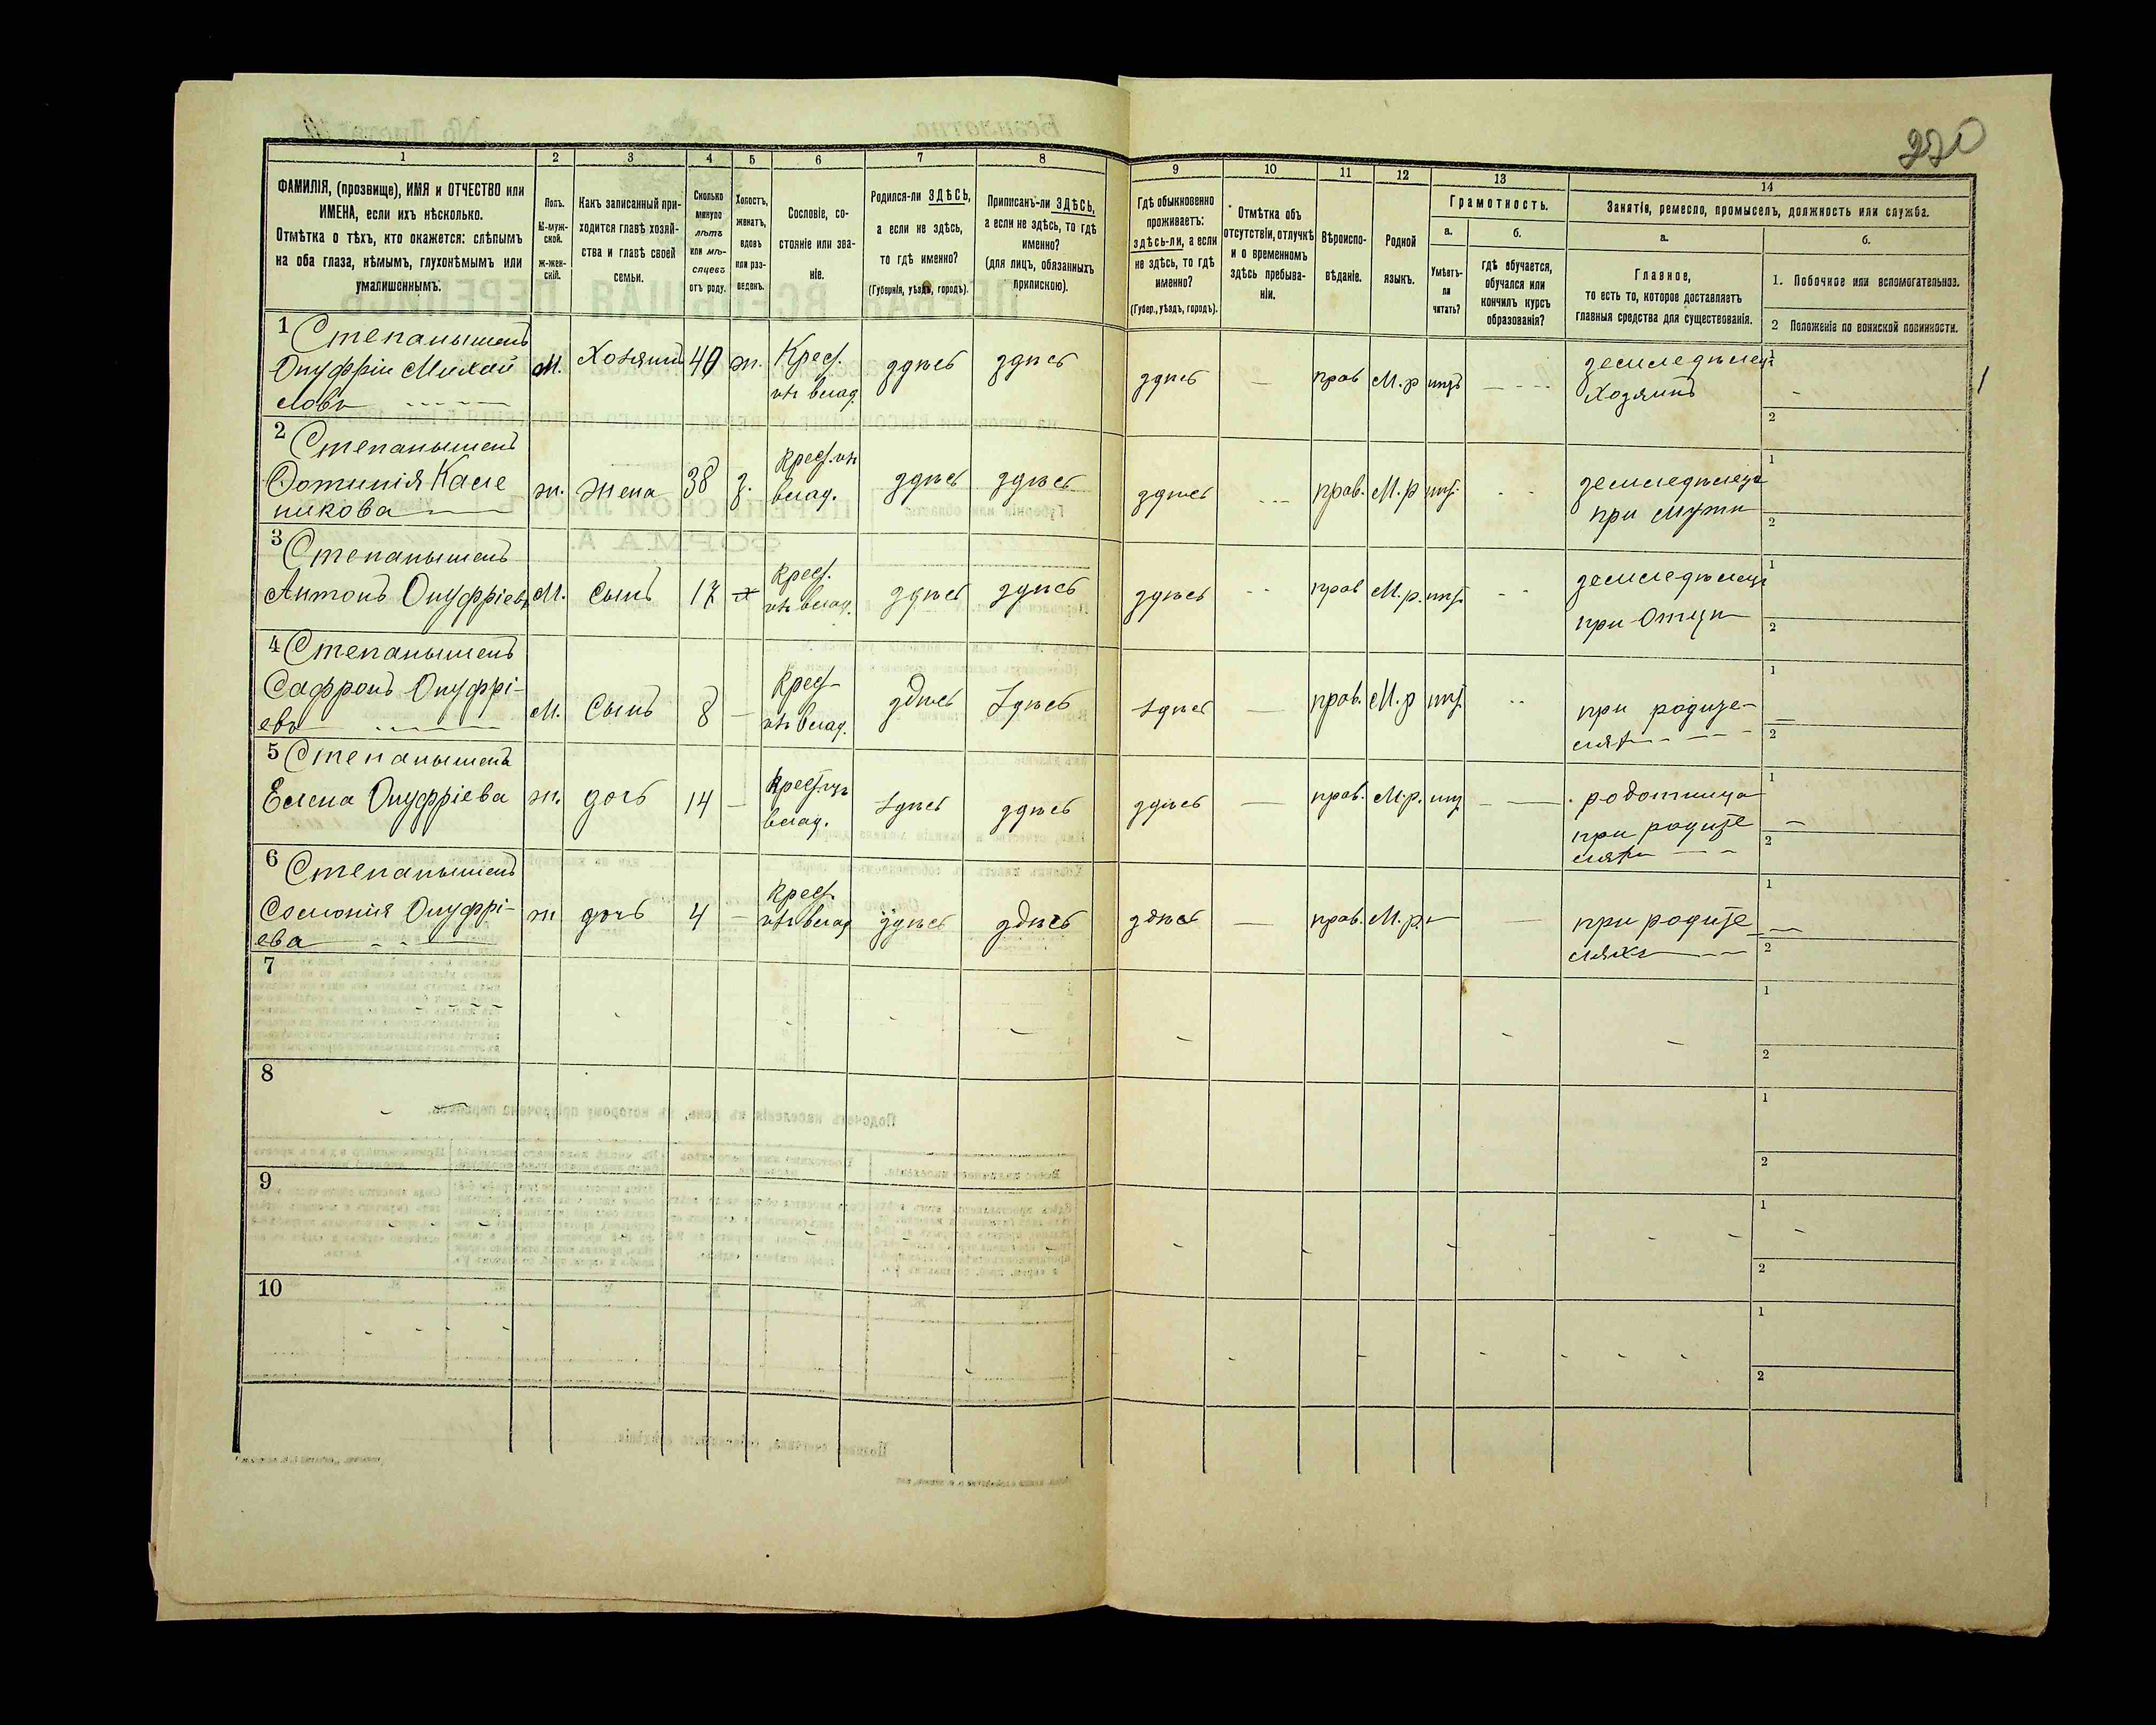 220
1 2 3 4 5 6 7 8 9 10 11 12 13 14
ФАМИЛІЯ, (прозвище), ИМЯ и ОТЧЕСТВО или
ИМЕНА, если ихъ нѣсколько.
Отмѣтка о тѣхъ, кто окажется: слѣпымъ
на оба глаза, нѣмымъ, глухонѣмымъ или
умалишеннымъ.
Полъ.
М-муж-
ской.
Ж-жен-
скій.
Какъ записанный при-
ходится главѣ хозяй-
ства и главѣ своей
семьи.
Сколько
минуло
лѣтъ
или мѣ-
сяцевъ
отъ роду.
Холостъ,
женатъ,
вдовъ
или раз-
веденъ.
Сословіе, со-
стояніе или зва-
ніе.
Родился-ли ЗДѢСЬ,
а если не здѣсь,
то гдѣ именно?
(Губернія, уѣздъ, городъ).
Приписанъ-ли ЗДѢСЬ,
а если не здѣсь, то гдѣ
именно?
(для лицъ, обязанныхъ
припискою).
Гдѣ обыкновенно
проживаетъ:
здѣсь-ли, а если
не здѣсь, то гдѣ
именно?
(Губер., уѣздъ, городъ).
Отмѣтка объ
отсутствіи, отлучкѣ
и о временномъ
здѣсь пребыва-
ніи.
Вѣроиспо-
вѣданіе.
Родной
языкъ.
Грамотность.
а.
Умѣетъ-
ли
читать?
б.
гдѣ обучается,
обучался или
кончилъ курсъ
образованія?
Занятія, ремесло, промыселъ, должность или служба.
а.
Главное,
то есть то, которое доставляетъ
главныя средства для существованія.
б.
1. Побочное или вспомогательное.
2 Положеніе по воинской повинности.
1 Степанышенъ
Онуфрій Михай
ловъ
М. Хозяинъ 40 ж. Крест. здѣсь здѣсь здѣсь — прав М.р нѣтъ
земледѣлецъ
Хозяинъ
1
2
2 Степанышенъ
Фотинія
никова
ж. Жена 38 з. здѣсь здѣсь здѣсь прав. М.р
земледѣлецъ
при мужѣ
1
2
3 Степанышенъ
Антонъ Онуфріевъ
М. Сынъ 17 х Крест. здѣсь здѣсь здѣсь прав М.р.
земледѣлецъ
при Отцѣ
1
2
4 Степанышенъ
Сафронъ Онуфрі-
евъ
М. Сынъ 8 — Крест здѣсь здѣсь здѣсь — прав. М.р
при родите-
ляхъ
1
2
5 Степанышенъ
Елена Онуфріева
ж. дочь 14 — здѣсь здѣсь здѣсь — прав. М.р.
работница
при родите
ляхъ
1
2
6 Степанышенъ
Соломія Онуфрі-
ева
ж дочь 4 — Крест. здѣсь здѣсь здѣсь — прав. М.р. —
при родите
ляхъ
1
2
7
1
2
8
1
2
9
1
2
10
1
2